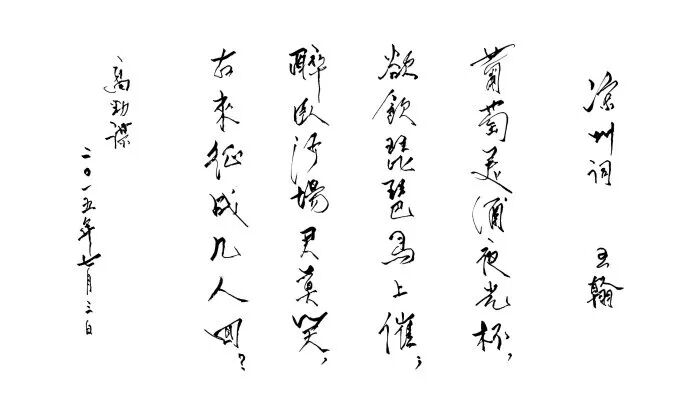 凉州词 王翰
葡萄美酒夜光杯,
欲飲琵琶馬上催;
醉臥沙場君莫笑,
古來征战几人回?
高
二〇一五年七月三日